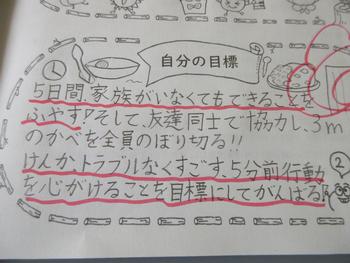 自分の目標
5日間、家族がいなくてもできることを
ふやす!そして、友達同士で協力し、3m
のかべを全員のぼり切る!!
けんか、トラブルなくすごす、5分前行動
を心がけることを目標にしてがんばる!
2